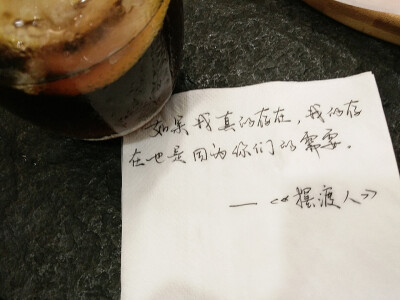 如果我真的存在，我的存
在也是因为你们的需要。
—《摆渡人》